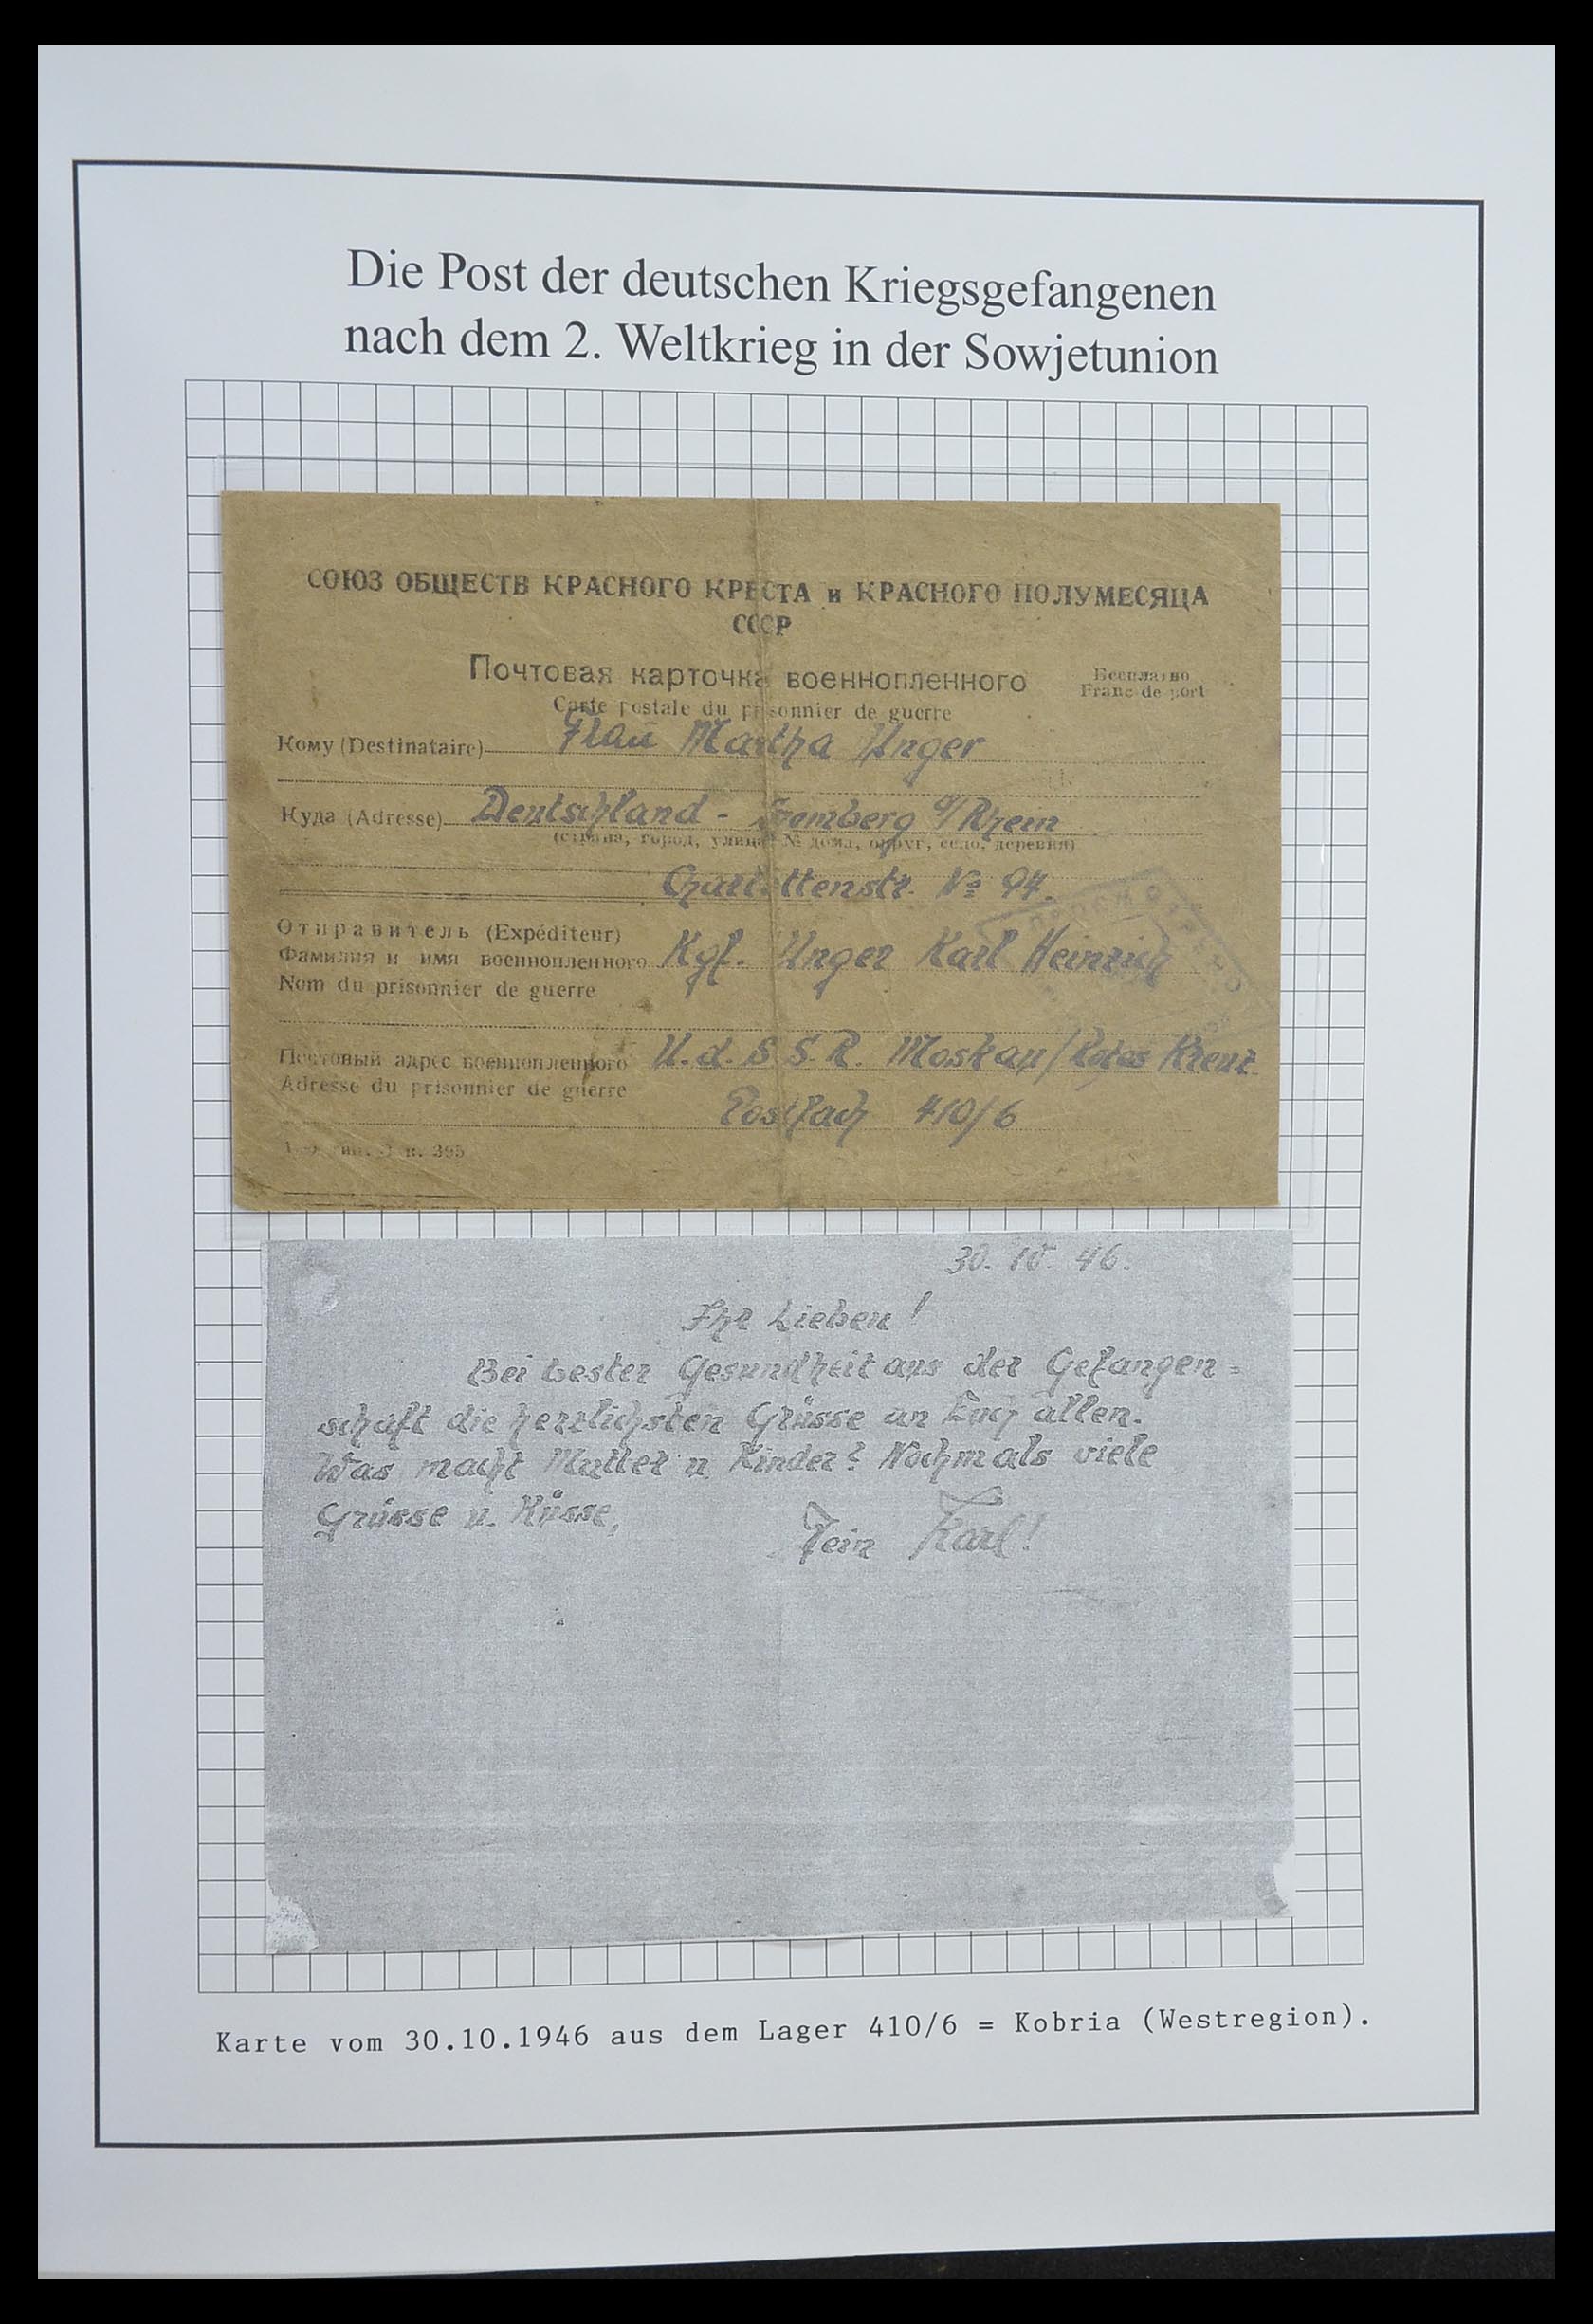 Die Post der deutschen Kriegsgefangenen
nach dem 2. Weltkrieg in der Sowjetunion
СОЮЗ ОБЩЕСТВ КРАСНОГО КРЕСТА и КРАСНОГО ПОЛУМЕСЯЦА
СССР
Почтовая карточка военнопленного
Бесплатно
Carte postale du prisonnier de guerre
Franc de port
Кому (Destinataire) Frau Martha Unger
Куда (Adresse) Deutschland - Homberg a/Rhein
(страна, город, улица, № дома, округ, село, деревня)
Charlottenstr. № 94.
Отправитель (Expéditeur)
Фамилия и имя военнопленного Kgf. Unger Karl Heinrich
Nom du prisonnier de guerre
Почтовый адрес военнопленного U.d.S.S.R. Moskau/Rotes Kreuz
Adresse du prisonnier de guerre
Postfach 410/6
30. 10. 46.
Ihr Lieben!
Bei bester Gesundheit aus der Gefangen=
schaft die herzlichsten Grüsse an Euch allen.
Was macht Mutter u. Kinder? Nochmals viele
Grüsse u. Küsse,
Dein Karl!
Karte vom 30.10.1946 aus dem Lager 410/6 = Kobria (Westregion).